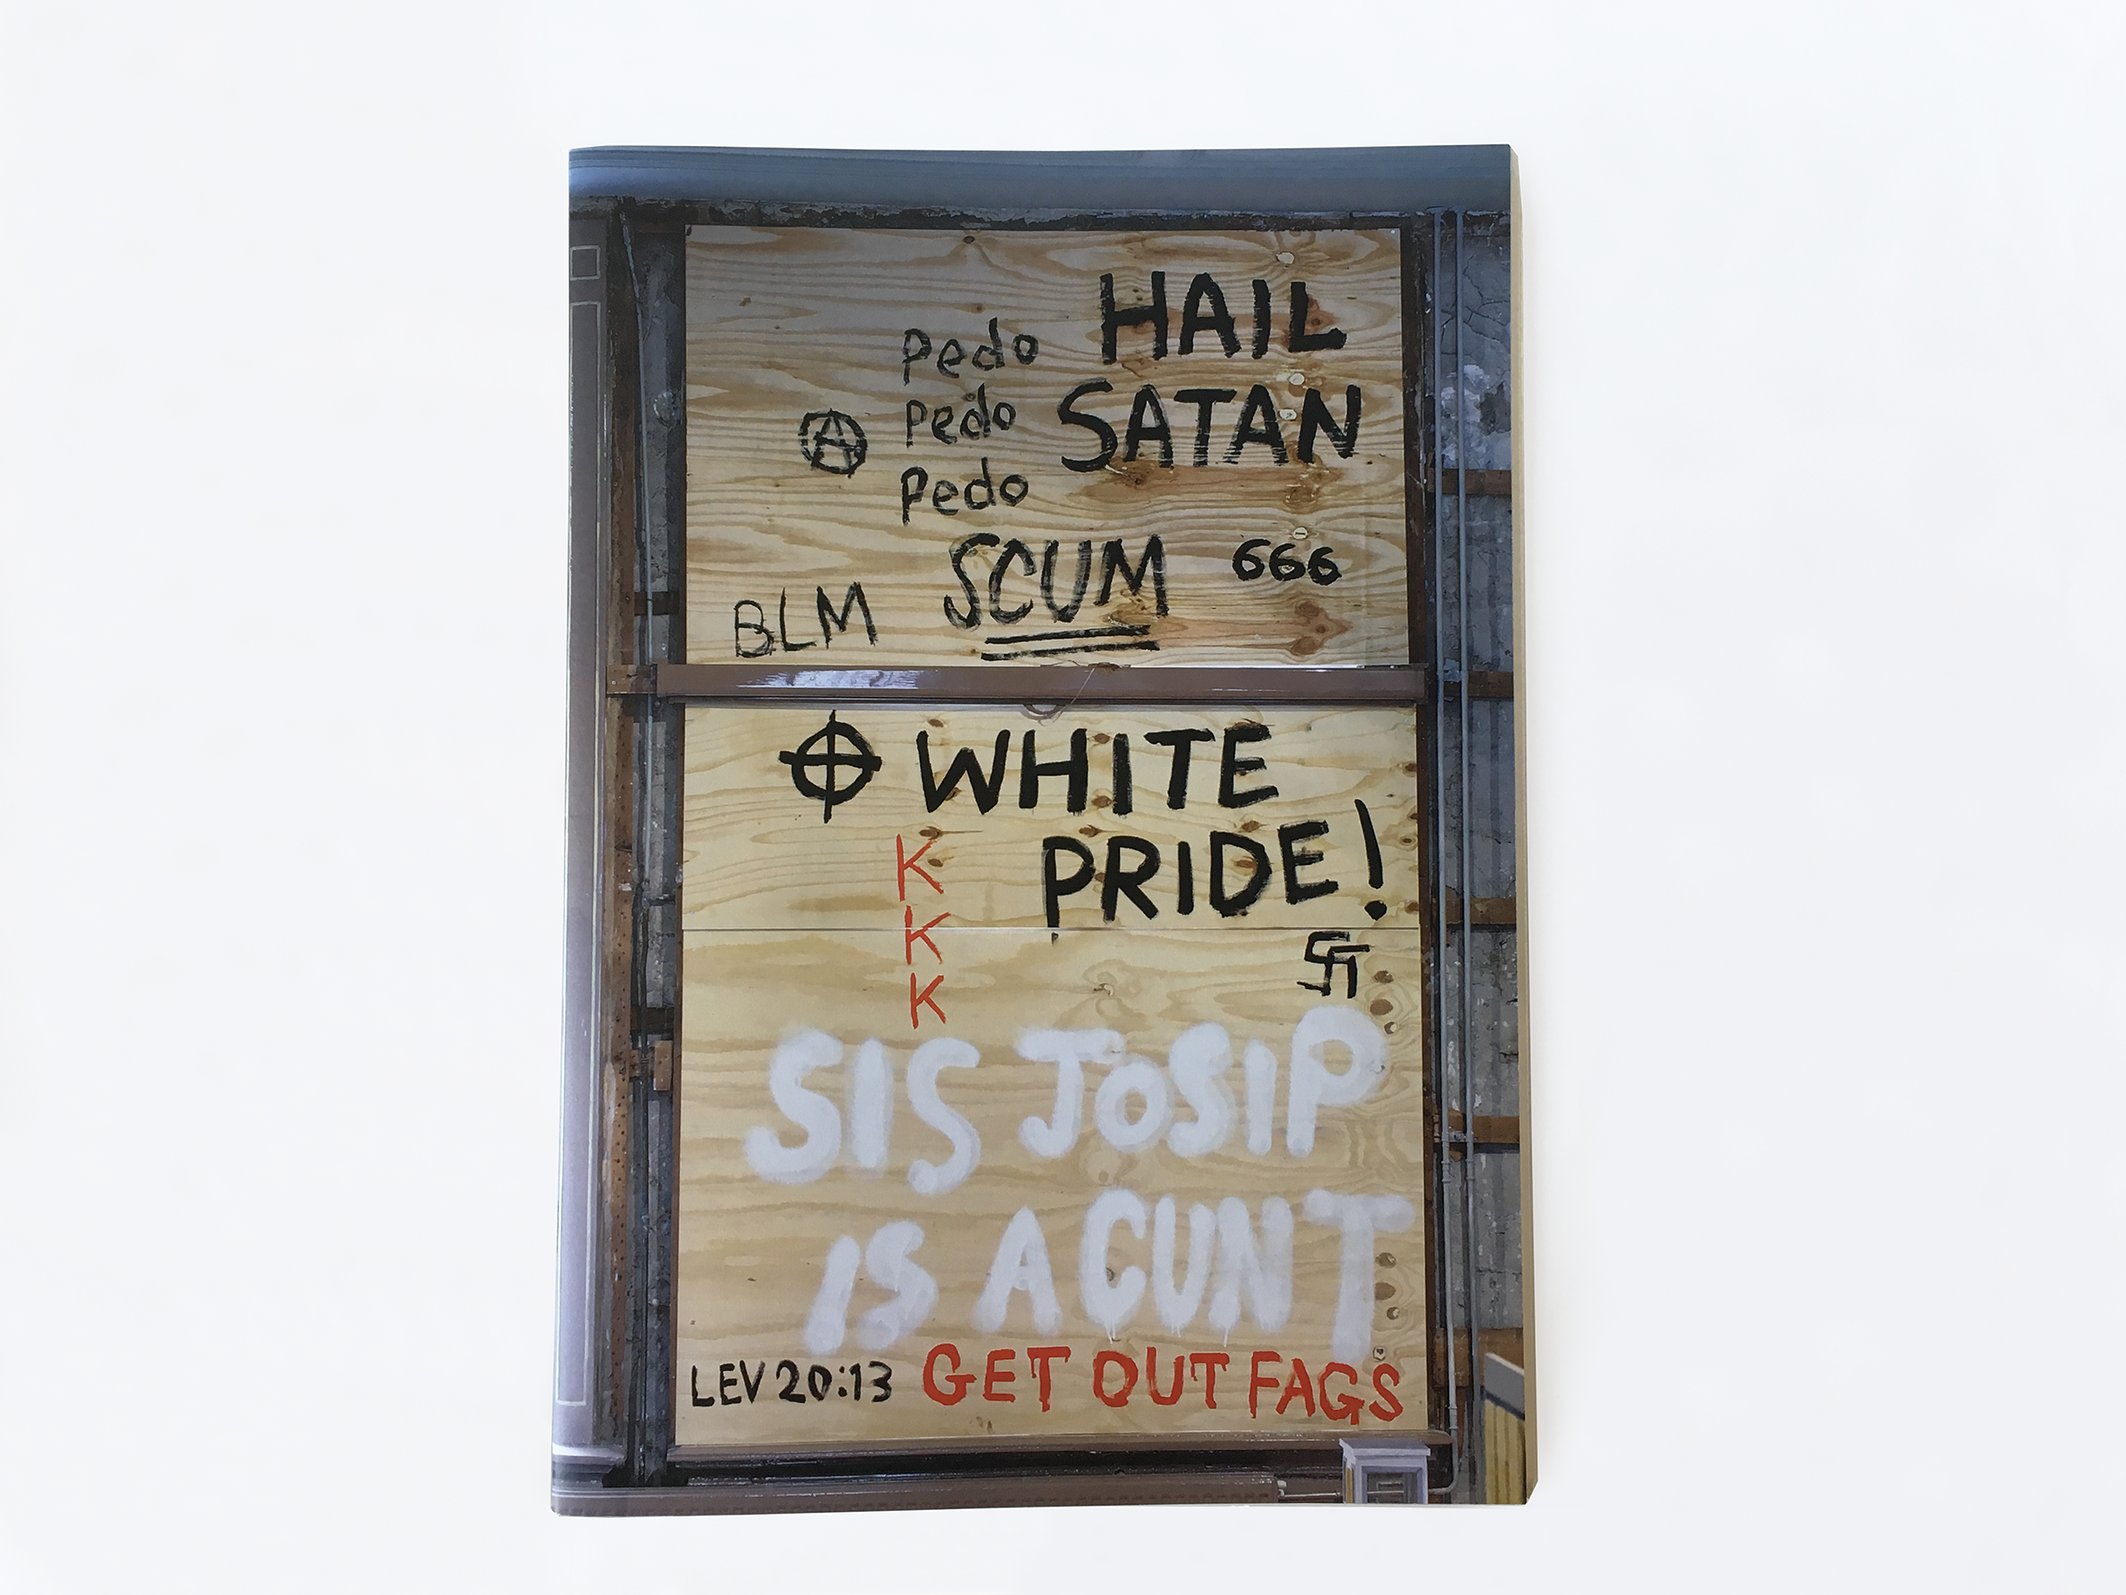 HAIL
Pedo
SATAN
Pedo
Pedo
SCUM
666
BLM
WHITE
PRIDE!
K
K
K
SIS JOSIP
IS A CUNT
LEV 20:13
GET OUT FAGS